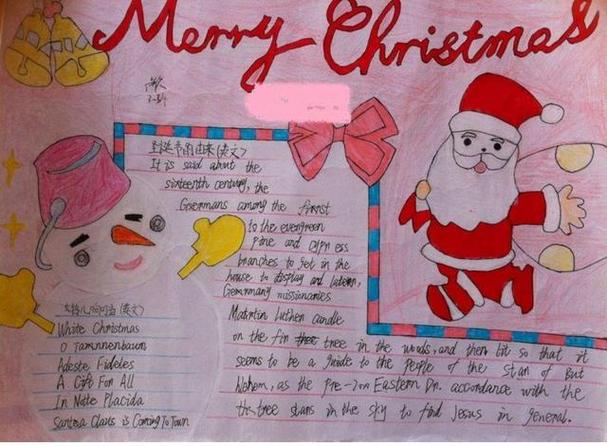 Merry Christmas
圣诞节的由来(英文)
It is said about the
sixteenth century, the
Goermans among the firest
to the evergreen
pine and cypr ess
branches to get in the
house to display and
Germmany missionaries
Matirtin Luthen candle
on the fin tree in the woods, and then lit so that it
seems to be a guide to the people of the stan of But
as the Eastern Dn. accordance with the
tree stans in the sky to find Jesus in general.
(英文)
White Christmas
O Tamnnenbaum
Adeste Fideles
A Gift For All
In Note Placida
Santosa Claus is Coming To Town